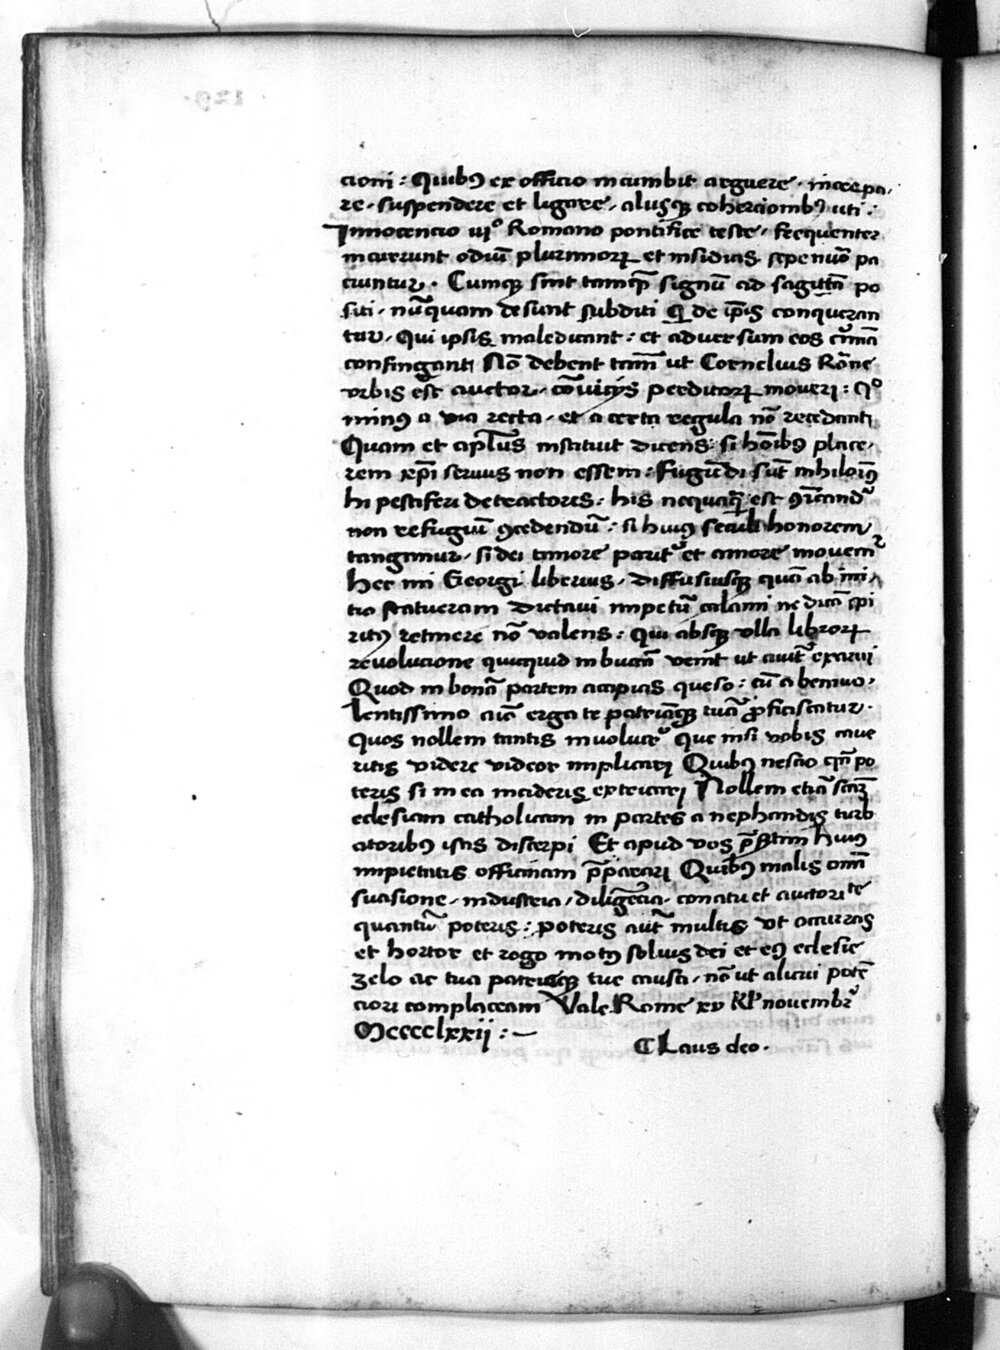 cioni : Quibꝰ ex officio incumbit arguere · increpa,
re · suspendere et ligare · alijsqꝫ cohercionibꝰ uti :
Innocencio iijº Romano pontifice teste · frequenter
incurrunt odiū plurimoꝝ et insidias sepenūo pa
ciuntur · Cumqꝫ sint tamqȝ signū ad sagittā po
siti · nūquam desunt subditi q̄ de ip̄is conqueran
tur · Qui ipsis maledicant : et aduersum eos c̄mīa
confingant Nō debent tām̄ ut Cornelius Rōne
vrbis est auctor · cōuicijs perditoꝝ moueri : qº
minꝰ a via recta · et a certa regula nō recedant
Quam et apl̄us instituit dicens : si hoībꝰ place,
rem xp̄i seruus non essem : Fugiēdi sūt
hi pestiferi detractores : his nequaq̄ est
non refugiū ꝯcedendū : si huiꝰ seculi honorem
tangimur · si dei timore parit᷑ et amore mouem᷑
Hec mi Georgi liberius · diffusiusqꝫ quā ab ini
tio statueram dictavi impetū calami ne dicā spi
ritꝰ retinere nō valens : qui absqꝫ vlla libroꝝ
reuolucione quicquid in buccā venit ut auit᷑ exaraui
Quod in bonā partem accipias queso : cū a beniuo,
lentissimo aīo erga te patriāqꝫ tuā ꝓficiscatur ·
Quos nollem tantis inuolui que nisi vobis caue
ritis videre videor implicari Quibꝰ nescio po
teris si in ea incideris extricari Nollem etiā
eclesiam catholicam in partes a nephandis turb
atoribꝰ istis discerpi Et apud vos p̄sertim huiꝰ
impietatis officinam p̄parari Quibꝰ malis omī
suasione · industria · diligēcia · conatu et autoritᵗᵉ
quantū poteris : poteris aūt multis vt occurras
et hortor et rogo motꝰ solius dei et eiꝰ eclesie
zelo ac tua patrieqꝫ tue causa · nō ut alicui potē
ciori complaceam Vale Rome xv kl̄ nouembr᷑
Mccccclxxij : –
¶ Laus deo ·